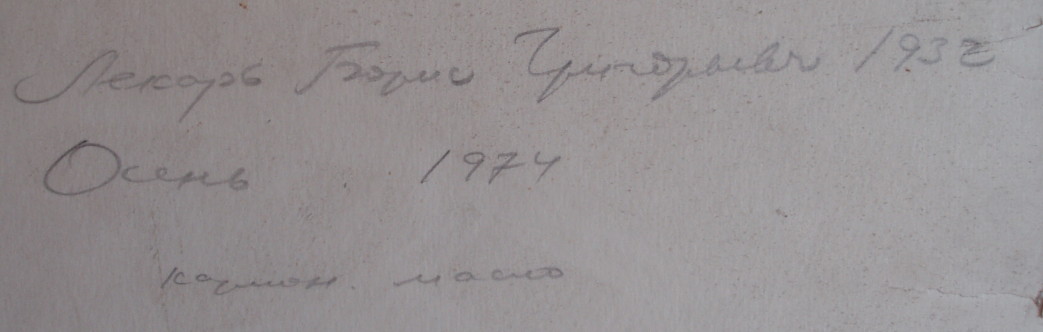 Лекарь Борис Григорьевич 1932
Осень 1974
картон. масло